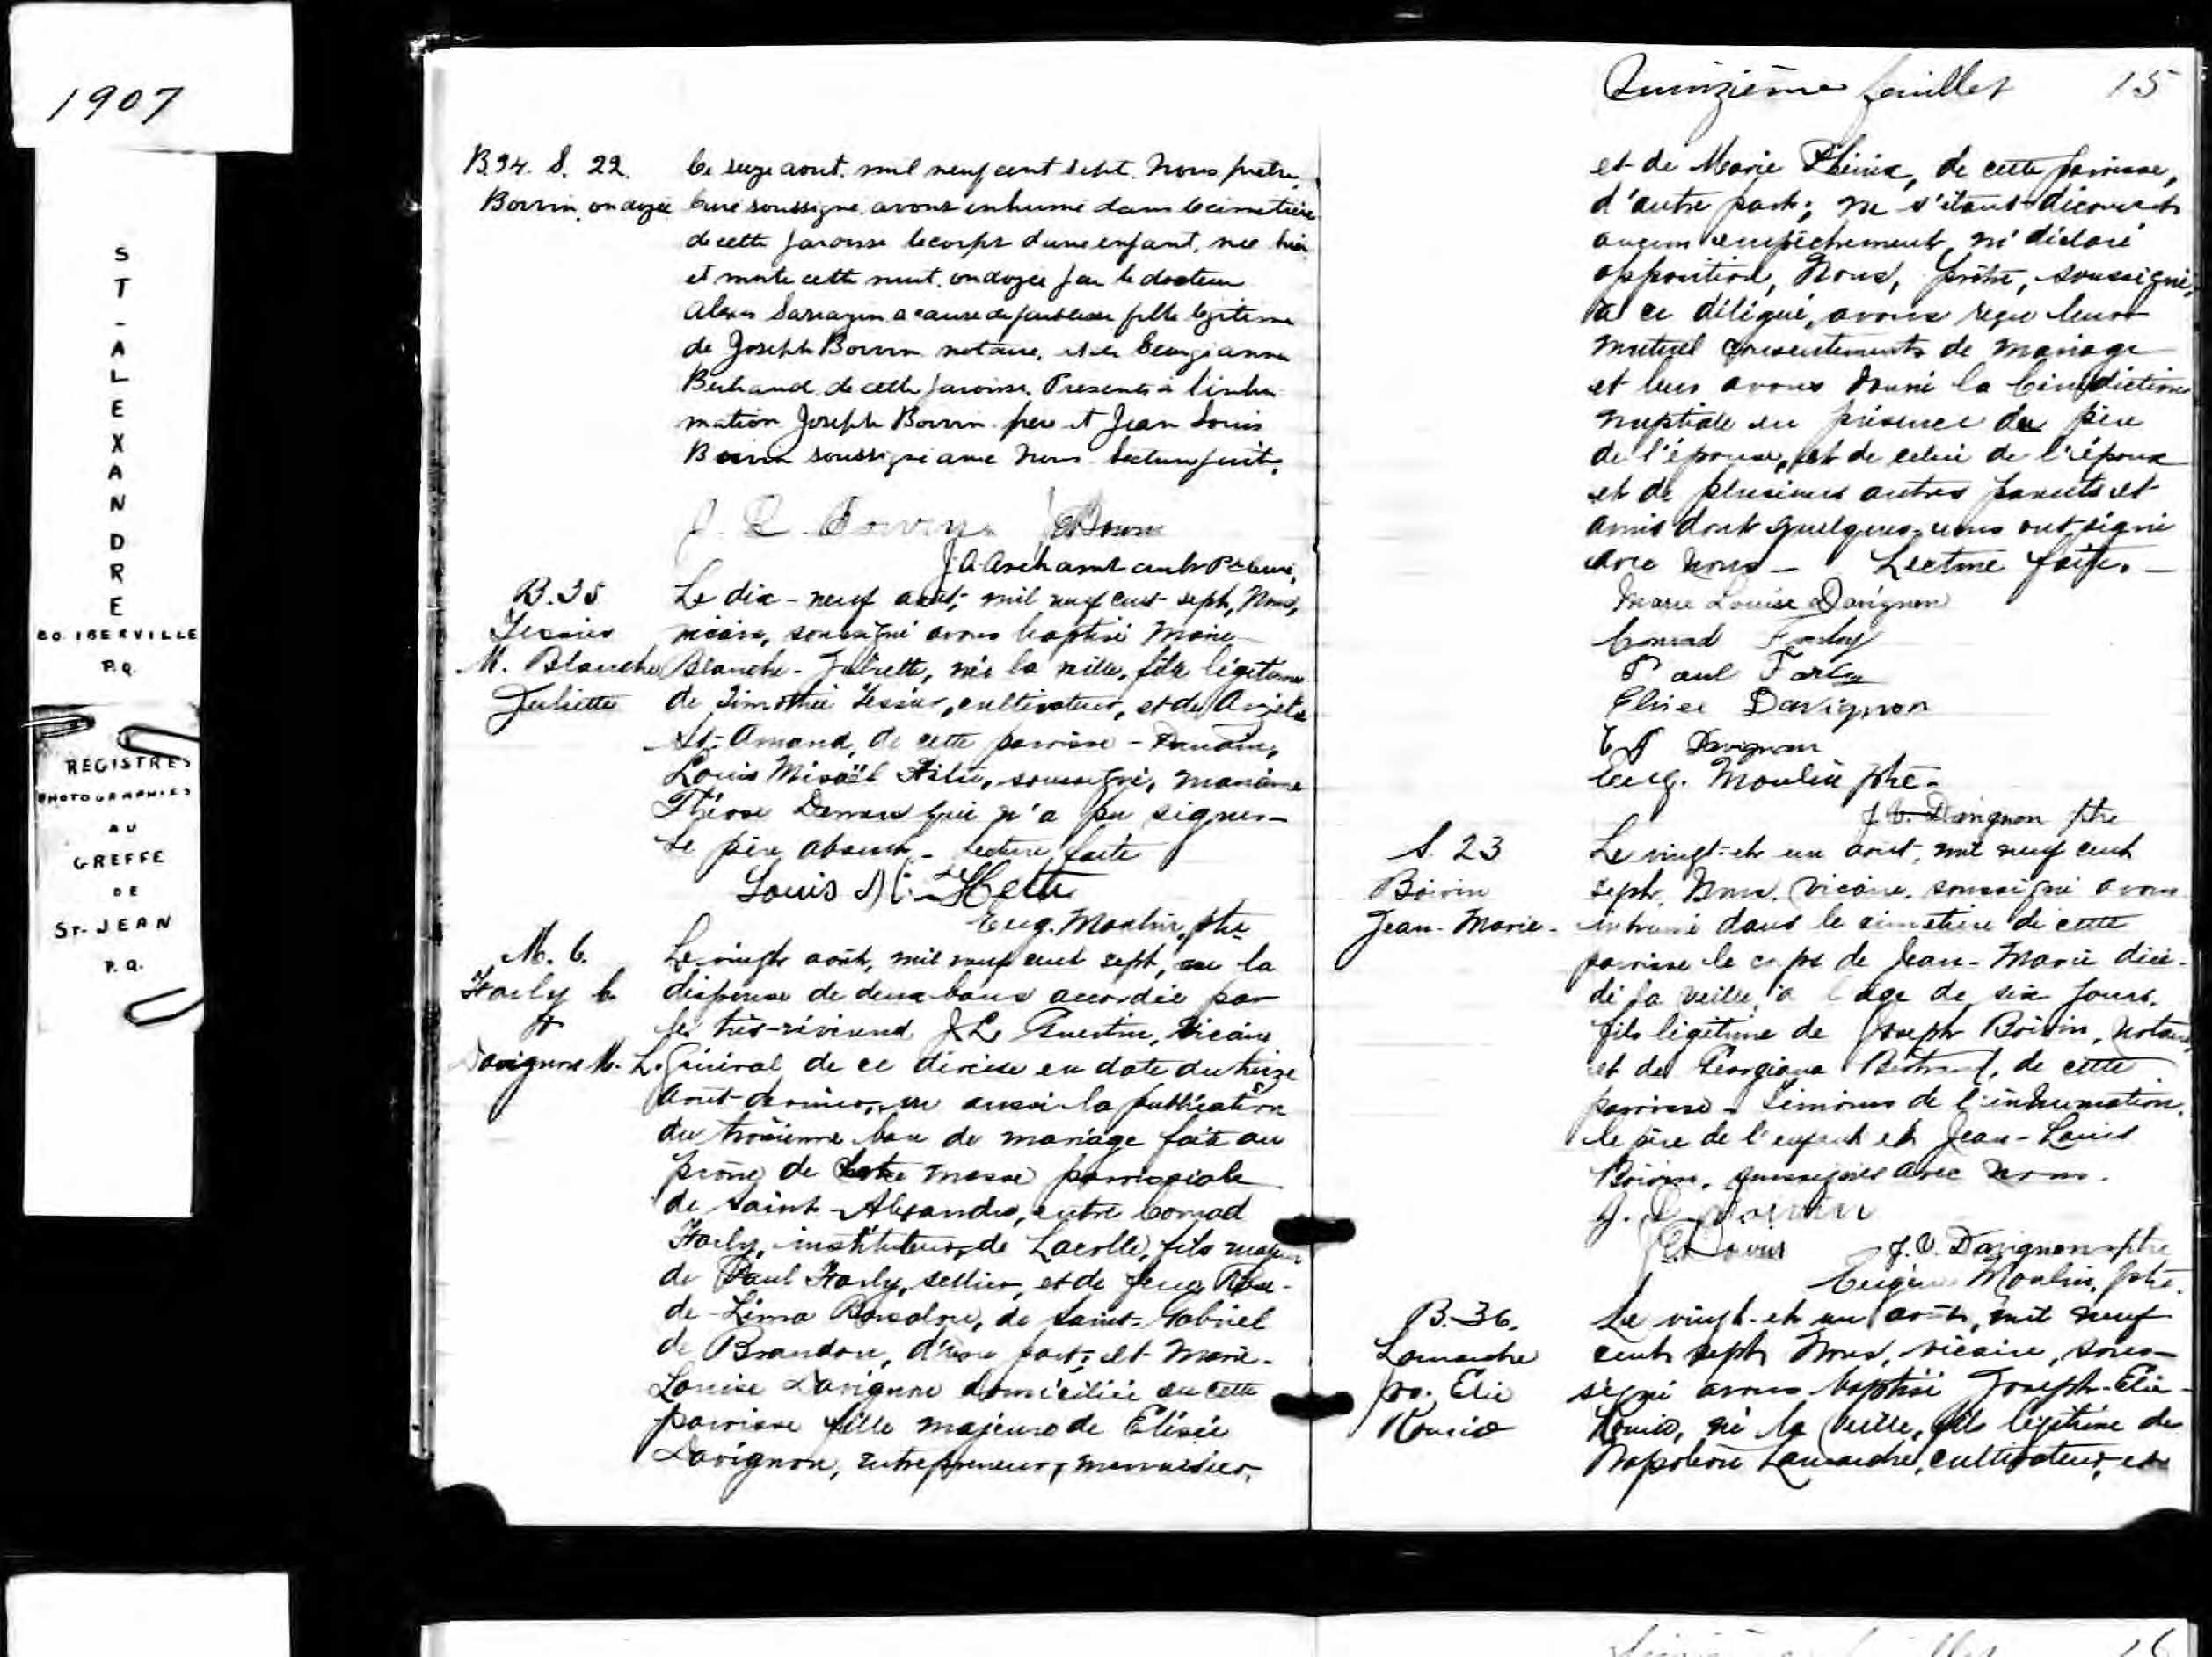 1907
ST-ALEXANDRE
CO. IBERVILLE
P.Q.
REGISTRES
PHOTOGRAPHIES
AU
GREFFE
DE
ST-JEAN
P.Q.
B.34. S. 22.
Boivin, ondoyée
Le seize aout, mil neuf cent sept, Nous prêtre,
Curé soussigné, avons inhumé dans le cimetière
de cette paroisse le corps d'une enfant, née hier
et morte cette nuit, ondoyée par le docteur
Alexis Sarrazin a cause de faiblesse fille légitime
de Joseph Boivin notaire, et de Georgianna
Bertrand de cette paroisse. Presents à l'inhu-
mation Joseph Boivin père et Jean Louis
Boivin soussigné avec Nous. Lecture faite.
J. L. Boivin J Boivin
J. A. Archambault Ptre Curé,
B.35
Tessier
M. Blanche
Juliette
Le dix-neuf août, mil neuf cent sept, Nous,
vicaire, soussigné avons baptisé Marie-
Blanche-Juliette, née la veille, fille légitime
de Timothée Tessier, cultivateur, et de
St-Amand, de cette paroisse - Parrain,
Louis Misaël soussigné, marraine
qui n'a pu signer-
Le père absent - Lecture faite
Louis M.
Eug. Moulin, ptre
M. 6.
Farly C.
&
Davignon M. L.
Le vingt août, mil neuf cent sept, vu la
dispense de deux bans accordée par
le très-révérend J. Vicaire
Général de ce diocèse en date du treize
Août dernier, vu aussi la publication
du troisième ban de mariage faite au
prône de notre messe paroissiale
de Saint-Alexandre, entre Conrad
Farly, instituteur, de Lacolle, fils majeur
de Paul Farly, sellier, et de feue Rose-
de-Lima de Saint-Gabriel
de Brandon, d'une part; et Marie-
Louise Davignon domiciliée en cette
paroisse fille majeure de Elisée
Davignon, entrepreneur, menuisier,
Quinzième feuillet 15
et de Marie Phénix, de cette paroisse,
d'autre part; ne s'étant découvert
aucun empêchement, ni déclaré
opposition, Nous, prêtre, soussigné,
à ce délégué, avons reçu leur
mutuel consentement de mariage
et leur avons donné la bénédiction
nuptiale en présence du père
de l'épouse, et de celui de l'époux
et de plusieurs autres parents et
amis dont quelques-uns ont signé
avec Nous - Lecture faite. -
Marie Louise Davignon
Conrad Farly
Paul Farly
Elisée Davignon
Davignon
Eug. Moulin ptre-
J. V. Davignon ptre
S. 23
Boivin
Jean-Marie-
Le vingt-et un août, mil neuf cent
sept, Nous, Vicaire, soussigné avons
inhumé dans le cimetière de cette
paroisse le corps de Jean-Marie décé-
dé la veille, à l'âge de six jours,
fils légitime de Joseph Boivin, Notaire,
et de Georgiana Bertrand, de cette
paroisse - Témoins de l'inhumation,
le père de l'enfant et Jean-Louis
Boivin, soussignés avec Nous.
J. L. Boivin
J. Boivin J. V. Davignon ptre
Eugène Moulin, ptre.
B.-36.
Lamarche
Jos. Elie
Le vingt-et un août, mil neuf
cent sept, Nous, vicaire, sous-
signé avons baptisé Joseph-Elie-
né la veille, fils légitime de
Napoléon Lamarche, cultivateur, et